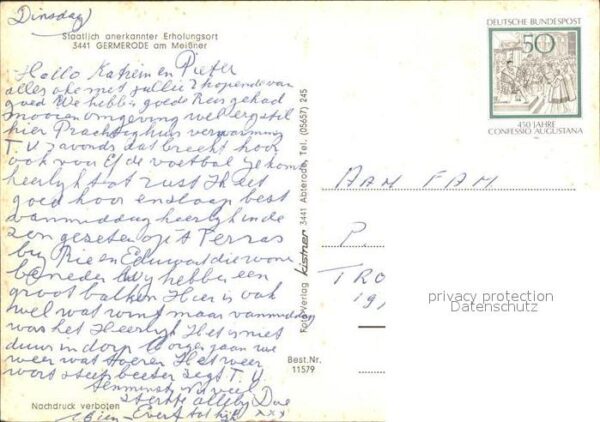 Dinsdag
Staatlich anerkannter Erholungsort
3441 GERMERODE am Meißner
Hallo Katrien en Pieter
alles oke met jullie? hopende van
goed We hebbe goede Reis gehad
mooie omgeving wel bergstil
hier Prachtig huis verwarming
T.V. 's avonds dat brecht hoor
ook voor Ef de voetbal
heerlijk tot rust Ik eet
goed hoor en slaap best
vanmiddag heerlijk in de
zon gezeten op 't Terras
bij Rie en Eduward die wone
beneden wij hebbe een
groot balkon Hier is ook
wel wat wind maar vanmiddag
was het Heerlijk Het is niet
duur in dorp
weer wat Het weer
wort steeds beter zegt T.V.
Tenminste
sterkte allebij Doe
Wien - Evert xxx
Nachdruck verboten
Foto-Verlag Kistner 3441 Abterode, Tel. (05657) 245
Best.Nr.
11579
DEUTSCHE BUNDESPOST
50
450 JAHRE
CONFESSIO AUGUSTANA
AAN FAM.
P.
TRO
19,
privacy protection
Datenschutz